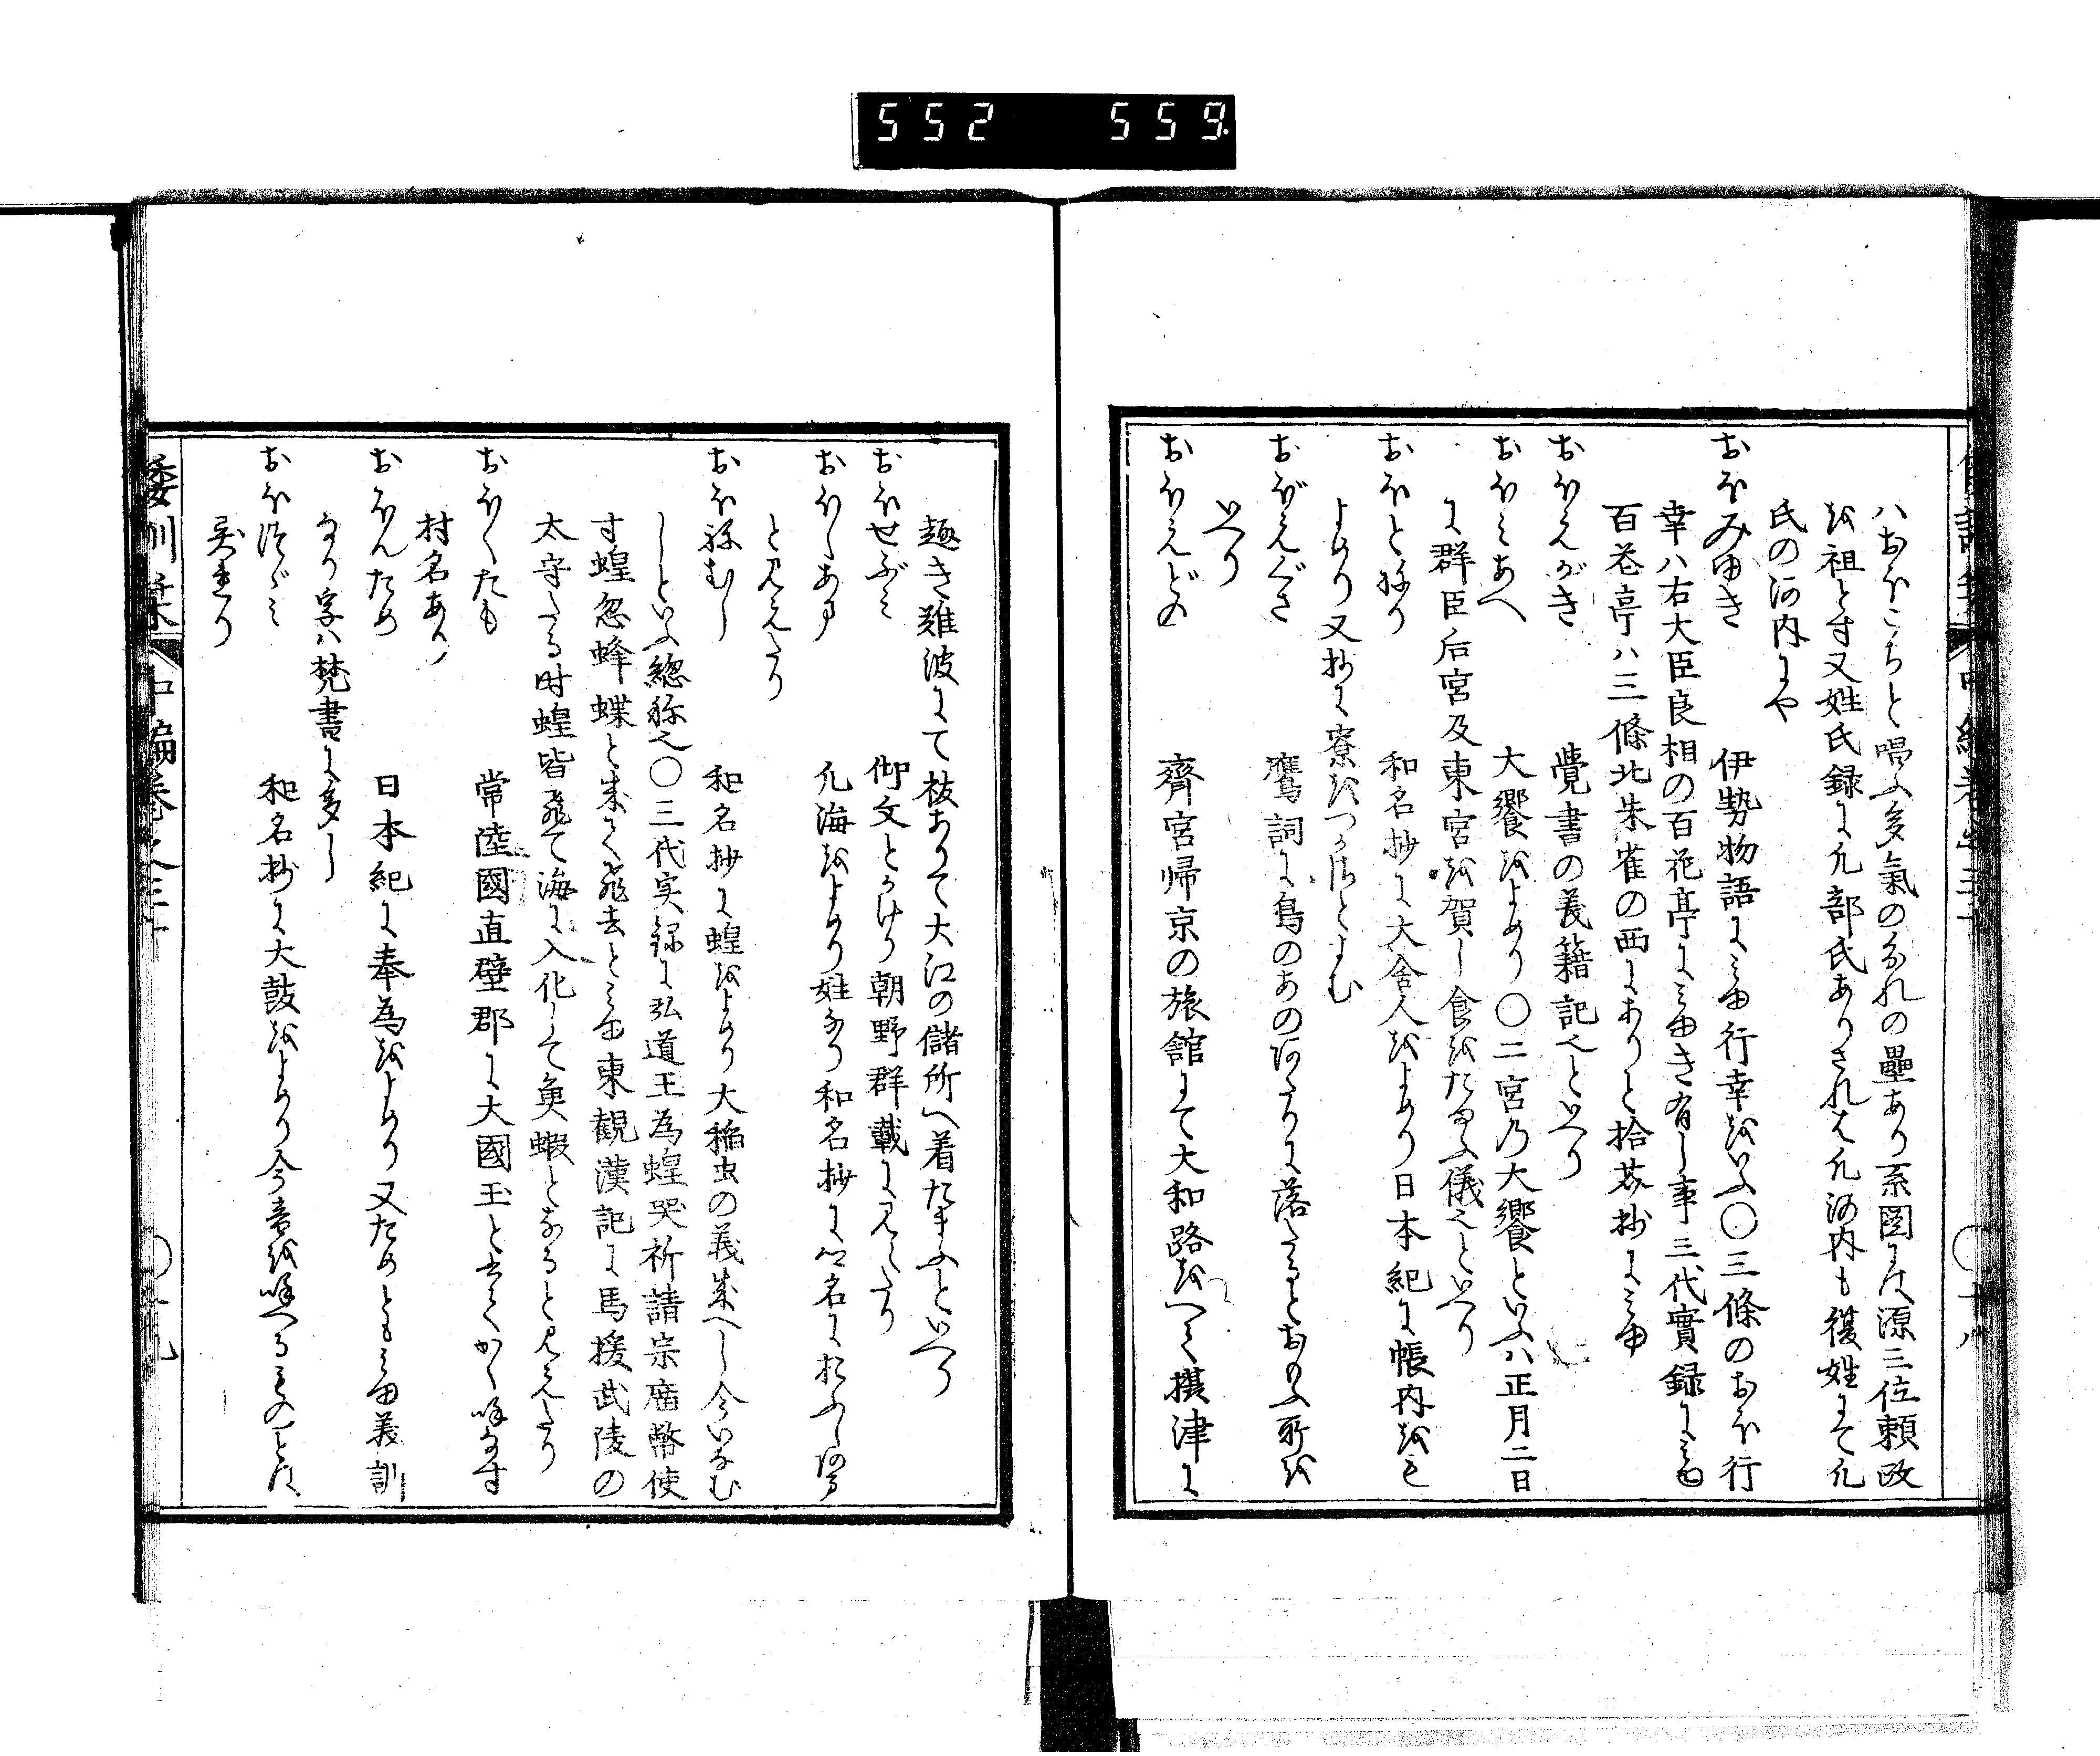 552 559
ハおほこちと唱ふ多氣のわれの壘あり系圖には源三位頼政
を祖とす又姓氏録に凡部氏ありされは凡河内も複姓にて凡
氏の河内にや
おほみゆき 伊勢物語にみゆ行幸をいふ〇三條のおほ行
幸ハ右大臣良相の百花亭にみゆき有し事三代實録にみゆ
百花亭ハ三條北朱雀の西にありと拾芥抄にみゆ
おほえがき 覺書の義籍記也といへり
おほみあへ 大饗をよめり〇二宮乃大饗といふハ正月二日
に群臣后宮及東宮を賀し食をたまふ儀也といへり
おほとねり 和名抄に大舍人をよめり日本紀に帳内をも
よめり又抄に寮をつかさとよむ
おぼえぐさ 鷹詞に鳥のあのあたりに落たるとおもふ所を
いへり
おほえどの 齊宮帰京の旅舘にて大和路をへて摂津に
趣き難波にて祓ありて大江の儲所へ着たまふといへり
おほせぶみ 仰文とかけり朝野群載に見えたり
おほしあま 凡海をよめり姓なり和名抄に心名におふしあま
と見えたり
おほねむし 和名抄に蝗をよめり大稲虫の義成へし今いなむ
しといふ総称也〇三代実録に弘道王為蝗災祈請宗廟幣使
寸蝗忽蜂蝶と成て飛去とみゆ東観漢記に馬援武陵の
太守たる时蝗皆飛て海に入化して魚蝦となると見えたり
おほくたも 常陸國直壁郡に大國玉と書てかく唱なす
村名あり
おほんため 日本紀に奉為をよめり又ためともみゆ義訓
なり字ハ梵書に多し
おほつゞみ 和名抄に大鼓をよめり今音を唱へるものとは
異れり
倭訓栞 中編巻之三 〇十九